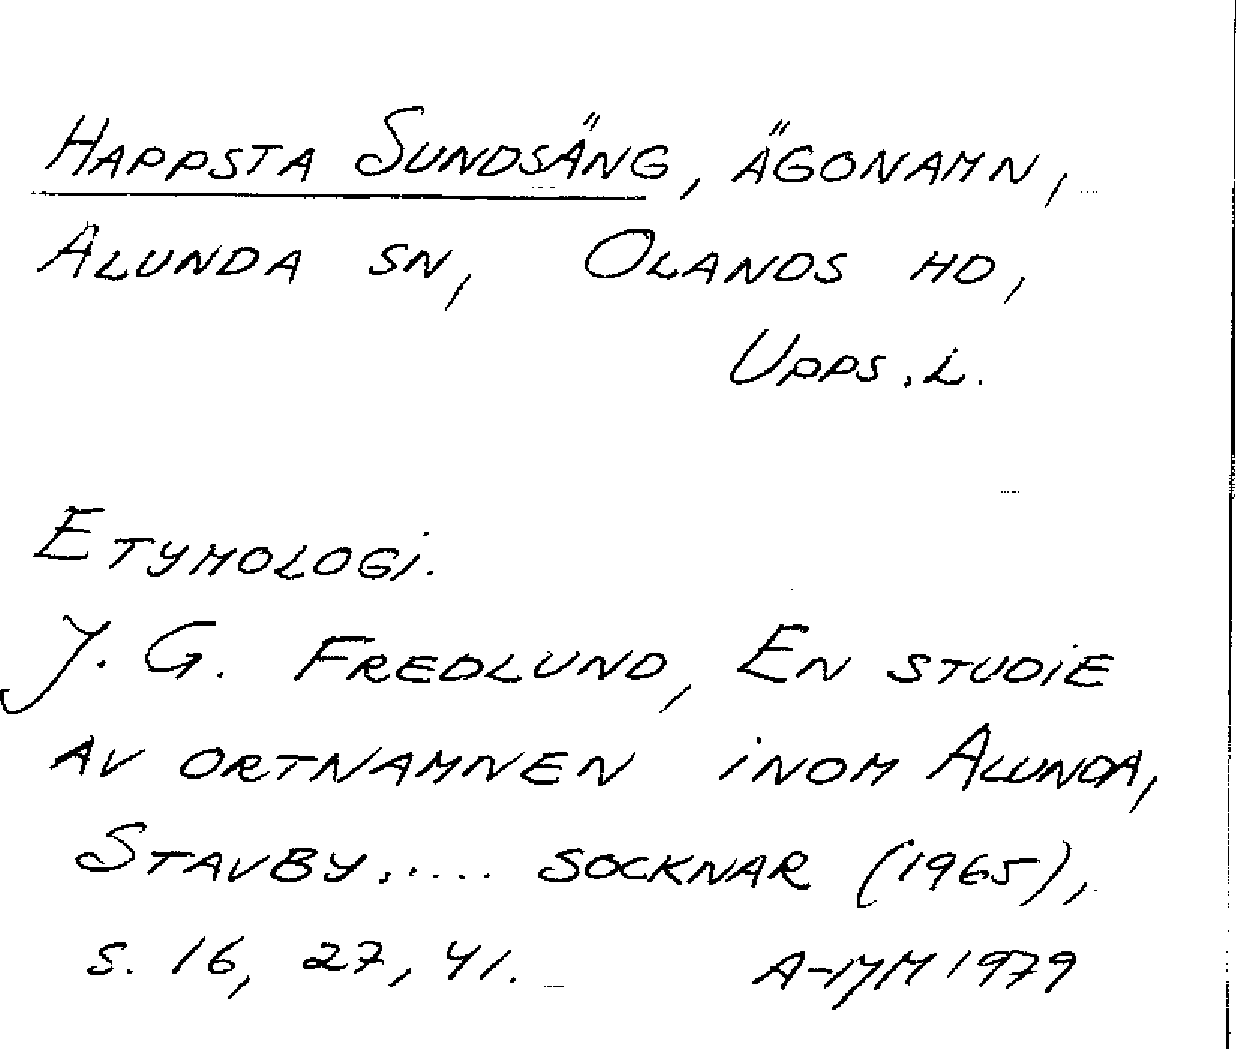 Happsta Sundsäng, ägonamn,
Alunda sn, Olands hd,
Upps.l.
Etymologi.
J. G. Fredlund, En studie
av ortnamnen inom Alunda,
Stavby..... socknar (1965),
s. 16, 27, 41. A-MM 1979